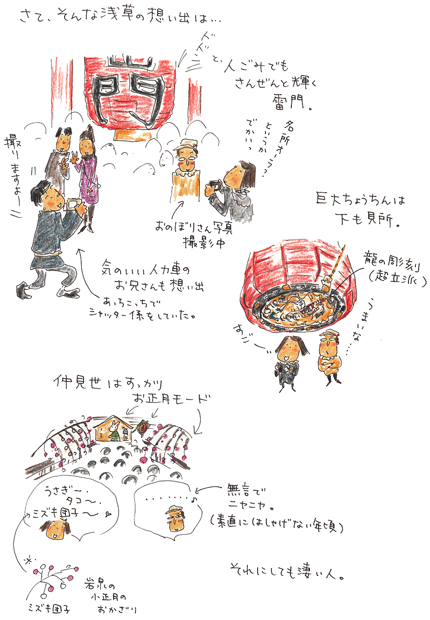 さて、そんな浅草の想い出は…
ドドドンと、
人ごみでも
さんぜんと輝く
雷門。
門
撮りますよー
名所オーラっ
というか
でかいっ
おのぼりさん写真
撮影中
気のいい人力車の
お兄さんも想い出
あっちこっちで
シャッター係をしていた。
巨大ちょうちんは
下も見所。
龍の彫刻
(超立派)
うまいな…
仲見世はすっかり
お正月モード
うさぎー、
タコ〜、
ミズキ団子〜
・・・・・・・♪
無言で
ニヤニヤ。
(素直にはしゃげない年頃)
※
ミズキ団子
岩泉の
小正月の
おかざり
それにしても凄い人。